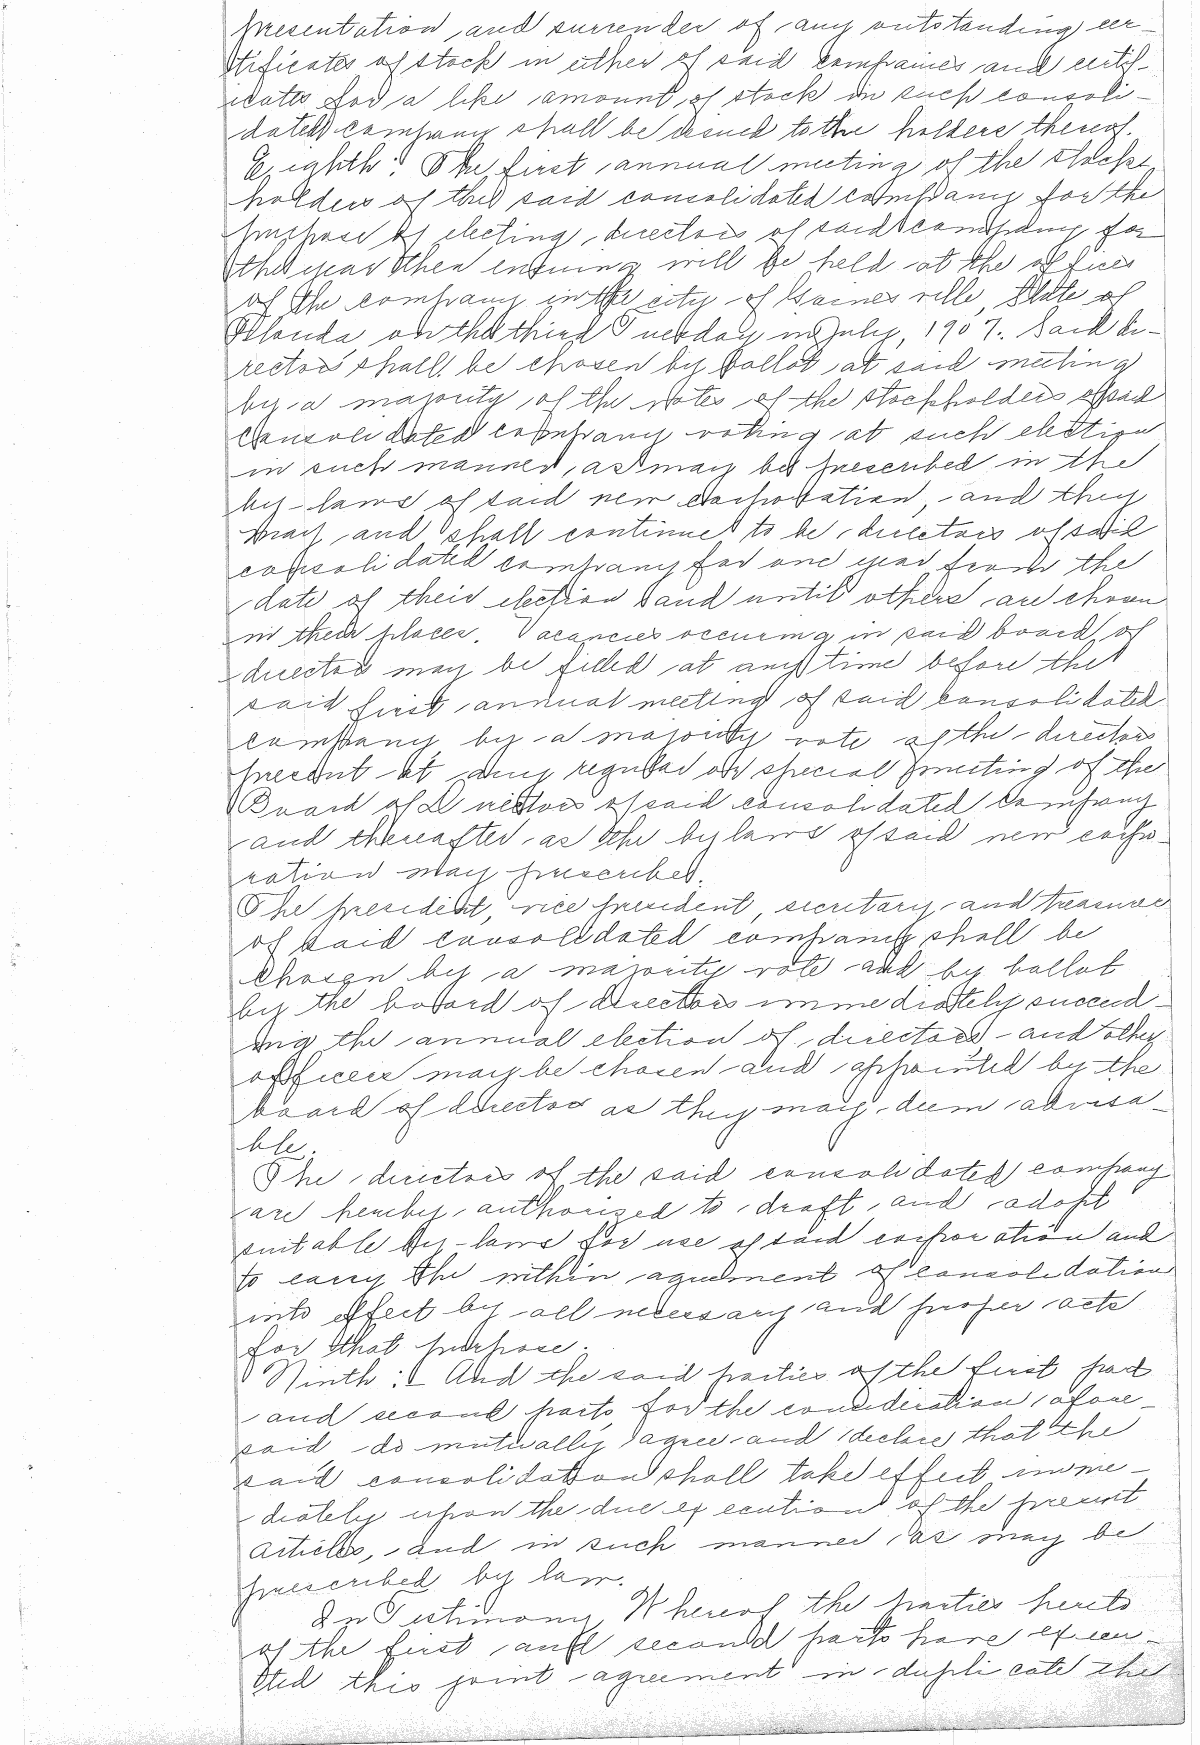 presentation and surrender of any outstanding cer-
tificates of stock in either of said companies and certif-
icates for a like amount of stock in such consoli-
dated company shall be issued to the holders thereof.
Eighth: The first annual meeting of the stock
holders of the said consolidated company for the
purpose of electing directors of said company for
the year then ensuing will be held at the offices
of the company in the city of Gainesville, State of
Florida on the third Tuesday in July, 1907. Said di-
rectors shall be chosen by ballot at said meeting
by a majority of the votes of the stockholders of said
consolidated company voting at such election
in such manner, as may be prescribed in the
by-laws of said new corporation, and they
may and shall continue to be directors of said
consolidated company for one year from the
date of their election and until others are chosen
in their places. Vacancies occuring in said board of
directors may be filled at any time before the
said first annual meeting of said consolidated
company by a majority vote of the directors
present at any regular or special meeting of the
Board of Directors of said consolidated company
and thereafter as the by laws of said new corpo-
ration may prescribe.
The president, vice president, secretary and treasurer
of said consolidated company shall be
chosen by a majority vote and by ballot
by the board of directors immediately succeed-
ing the annual election of directors, and other
officers may be chosen and appointed by the
board of director as they may deem advisa-
ble.
The directors of the said consolidated company
are hereby authorized to draft, and adopt
suitable by-laws for use of said corporation and
to carry the within agreement of consolidation
into effect by all necessary and proper acts
for that purpose.
Ninth:- And the said parties of the first part
and second parts, for the consideration afore-
said do mutually agree and declare that the
said consolidation shall take effect imme-
diately upon the due execution of the present
articles, and in such manner as may be
prescribed by law.
In Testimony Whereof the parties hereto
of the first and second parts have execu-
ted this joint agreement in duplicate the